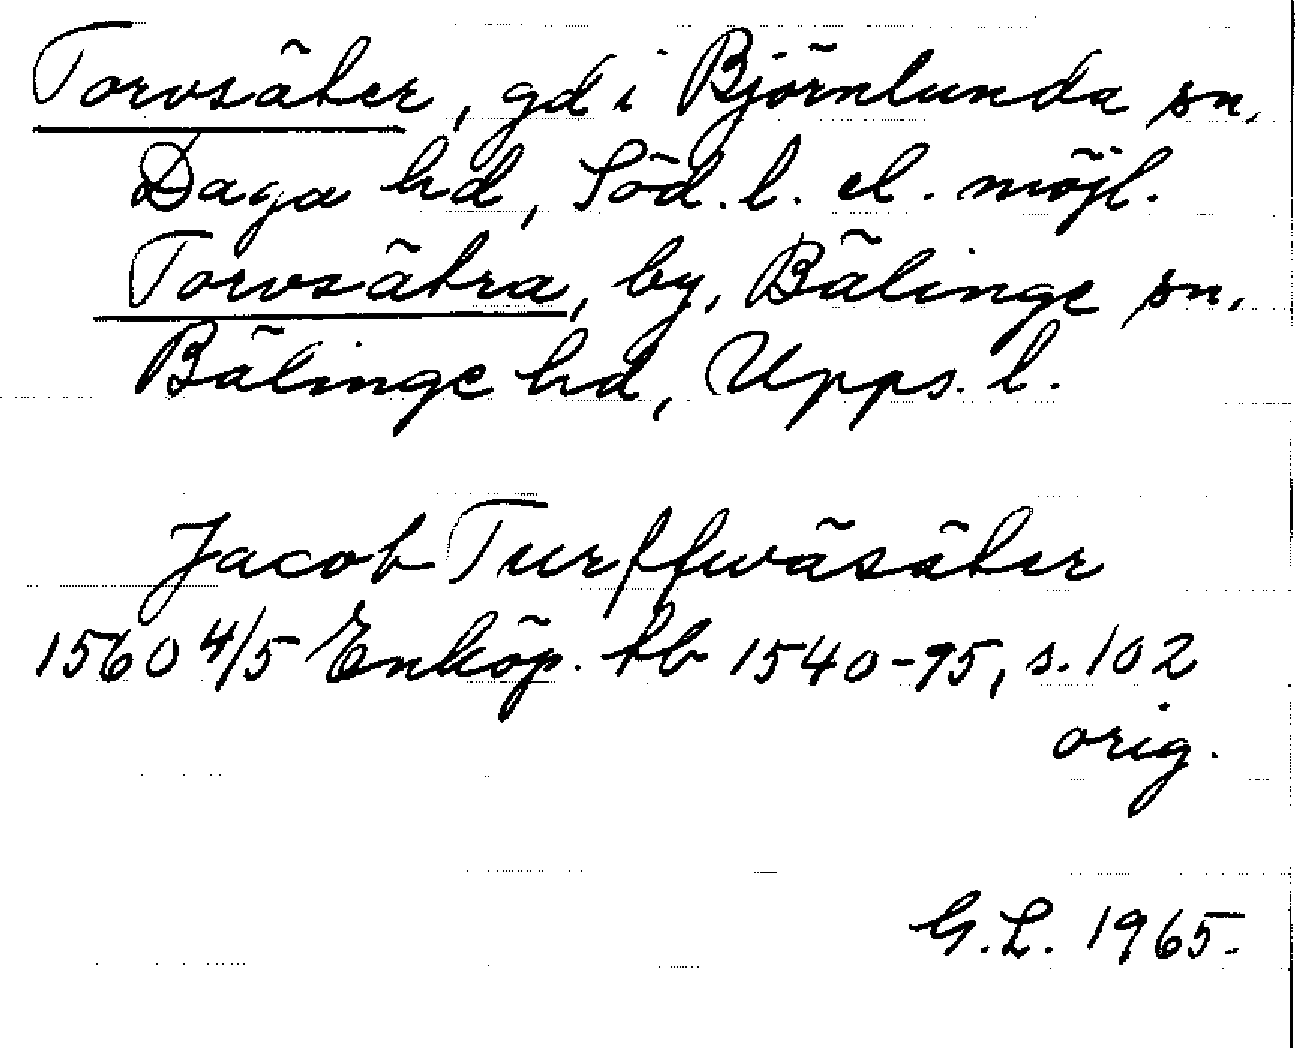 Torvsäter, gd i Björnlunda sn,
Daga hd, Söd. l. el. möjl.
Torvsätra, by, Bälinge sn,
Bälinge hd, Upps. l.
Jacob Turffwäsäter
1560 4/5 Enköp. tb 1540-95, s. 102
orig.
G. L. 1965.